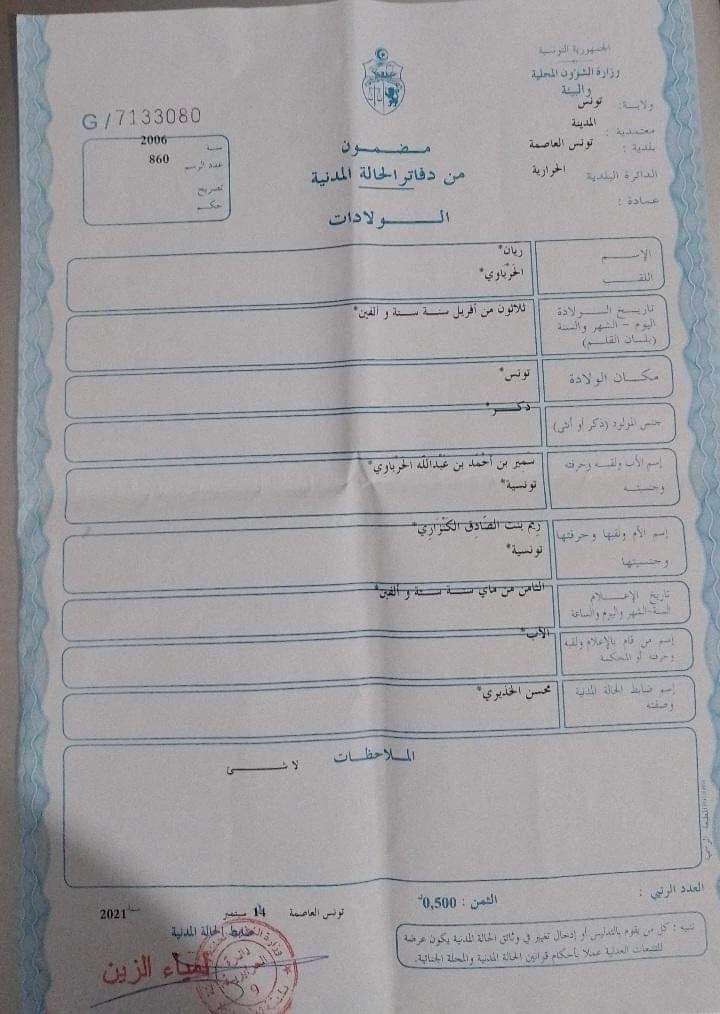 الجمهورية التونسية
وزارة الشؤون المحلية
والبيئة
ولاية : تونس
معتمدية : المدينة
بلدية : تونس العاصمة
الدائرة البلدية : الحرايرية
عمادة :
G / 7133080
سنة 2006
عدد الرسم 860
تصريح
حكم
مضمون
من دفاتر الحالة المدنية
الولادات
الإسم ريان*
اللقب الحرباوي*
تاريخ الولادة ثلاثون من أفريل سنة ستة و ألفين*
اليوم - الشهر والسنة
(بلسان القلم)
مكان الولادة تونس*
جنس المولود (ذكر أو أنثى) ذكر*
إسم الأب ولقبه وحرفته سمير بن أحمد بن عبدالله الحرباوي*
وجنسيته تونسية*
إسم الأم ولقبها وحرفتها ريم بنت الصادق الكنزاري*
وجنسيتها تونسية*
تاريخ الإعلام الثامن من ماي سنة ستة و ألفين*
السنة-الشهر واليوم والساعة
إسم من قام بالإعلام ولقبه الأب*
وحرفته أو المحكمة
إسم ضابط الحالة المدنية محسن الخذيري*
وصفته
الملاحظات
لا شئ
العدد الرتبي :
الثمن : 0,500د
تونس العاصمة 14 سبتمبر سنة 2021
ضابط الحالة المدنية
لمياء الزين
تنبيه : كل من يقوم بالتدليس أو إدخال تغيير في وثائق الحالة المدنية يكون عرضة
للتتبعات العدلية عملا بأحكام قوانين الحالة المدنية والمجلة الجنائية.